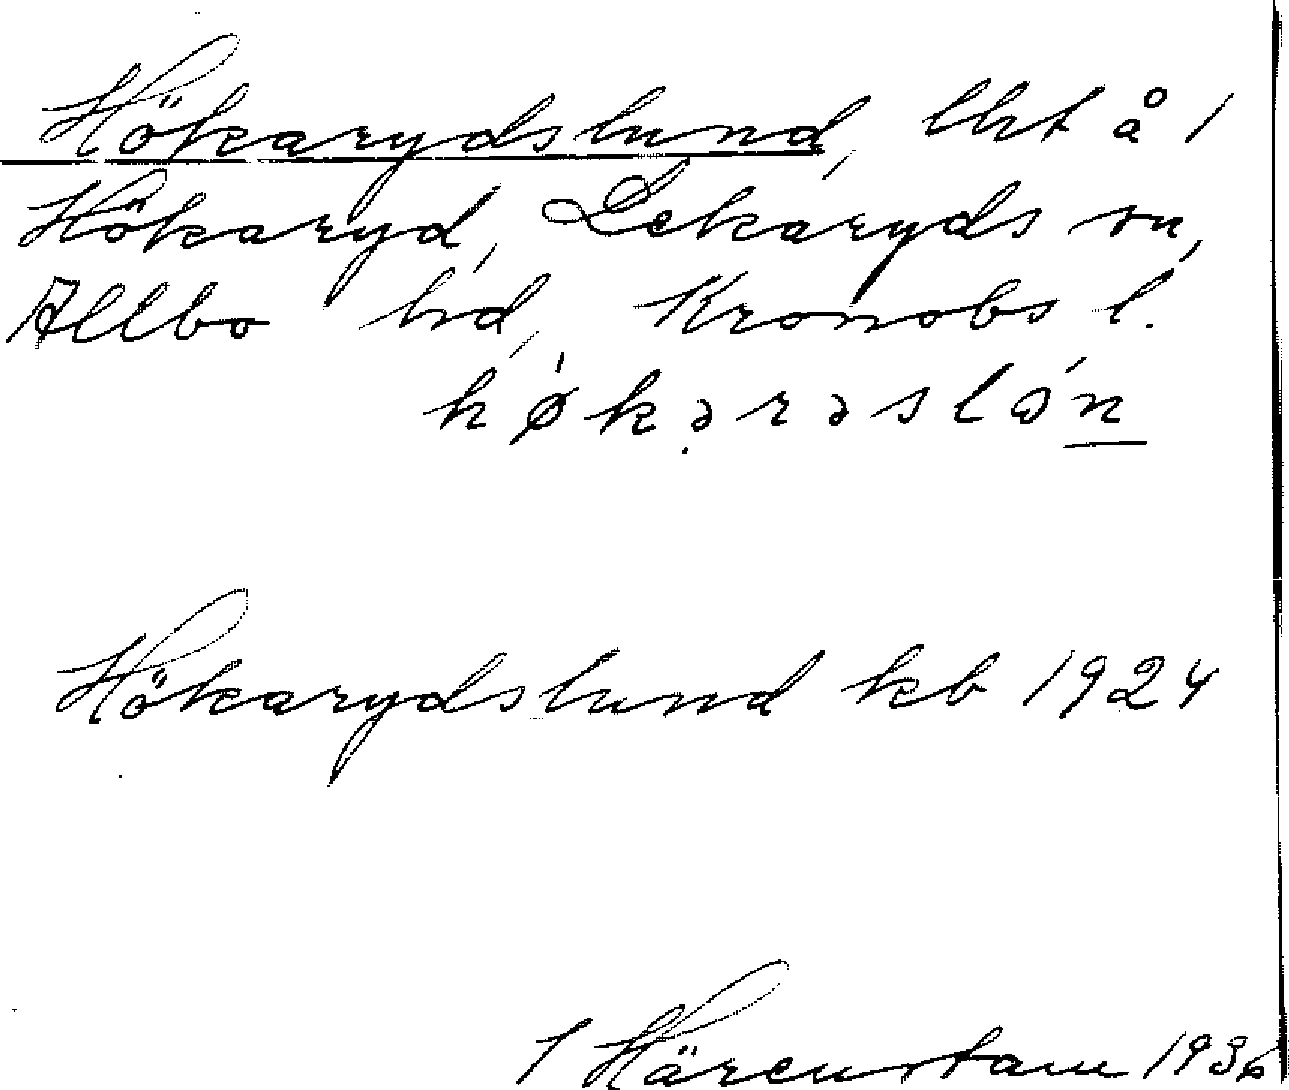 Hökarydslund, lht å 1
Hökaryd, Lekaryds sn,
Allbo hd, Kronobs l.
hø´kərəslón
Hökarydslund kb 1924
J Härenstam 1936